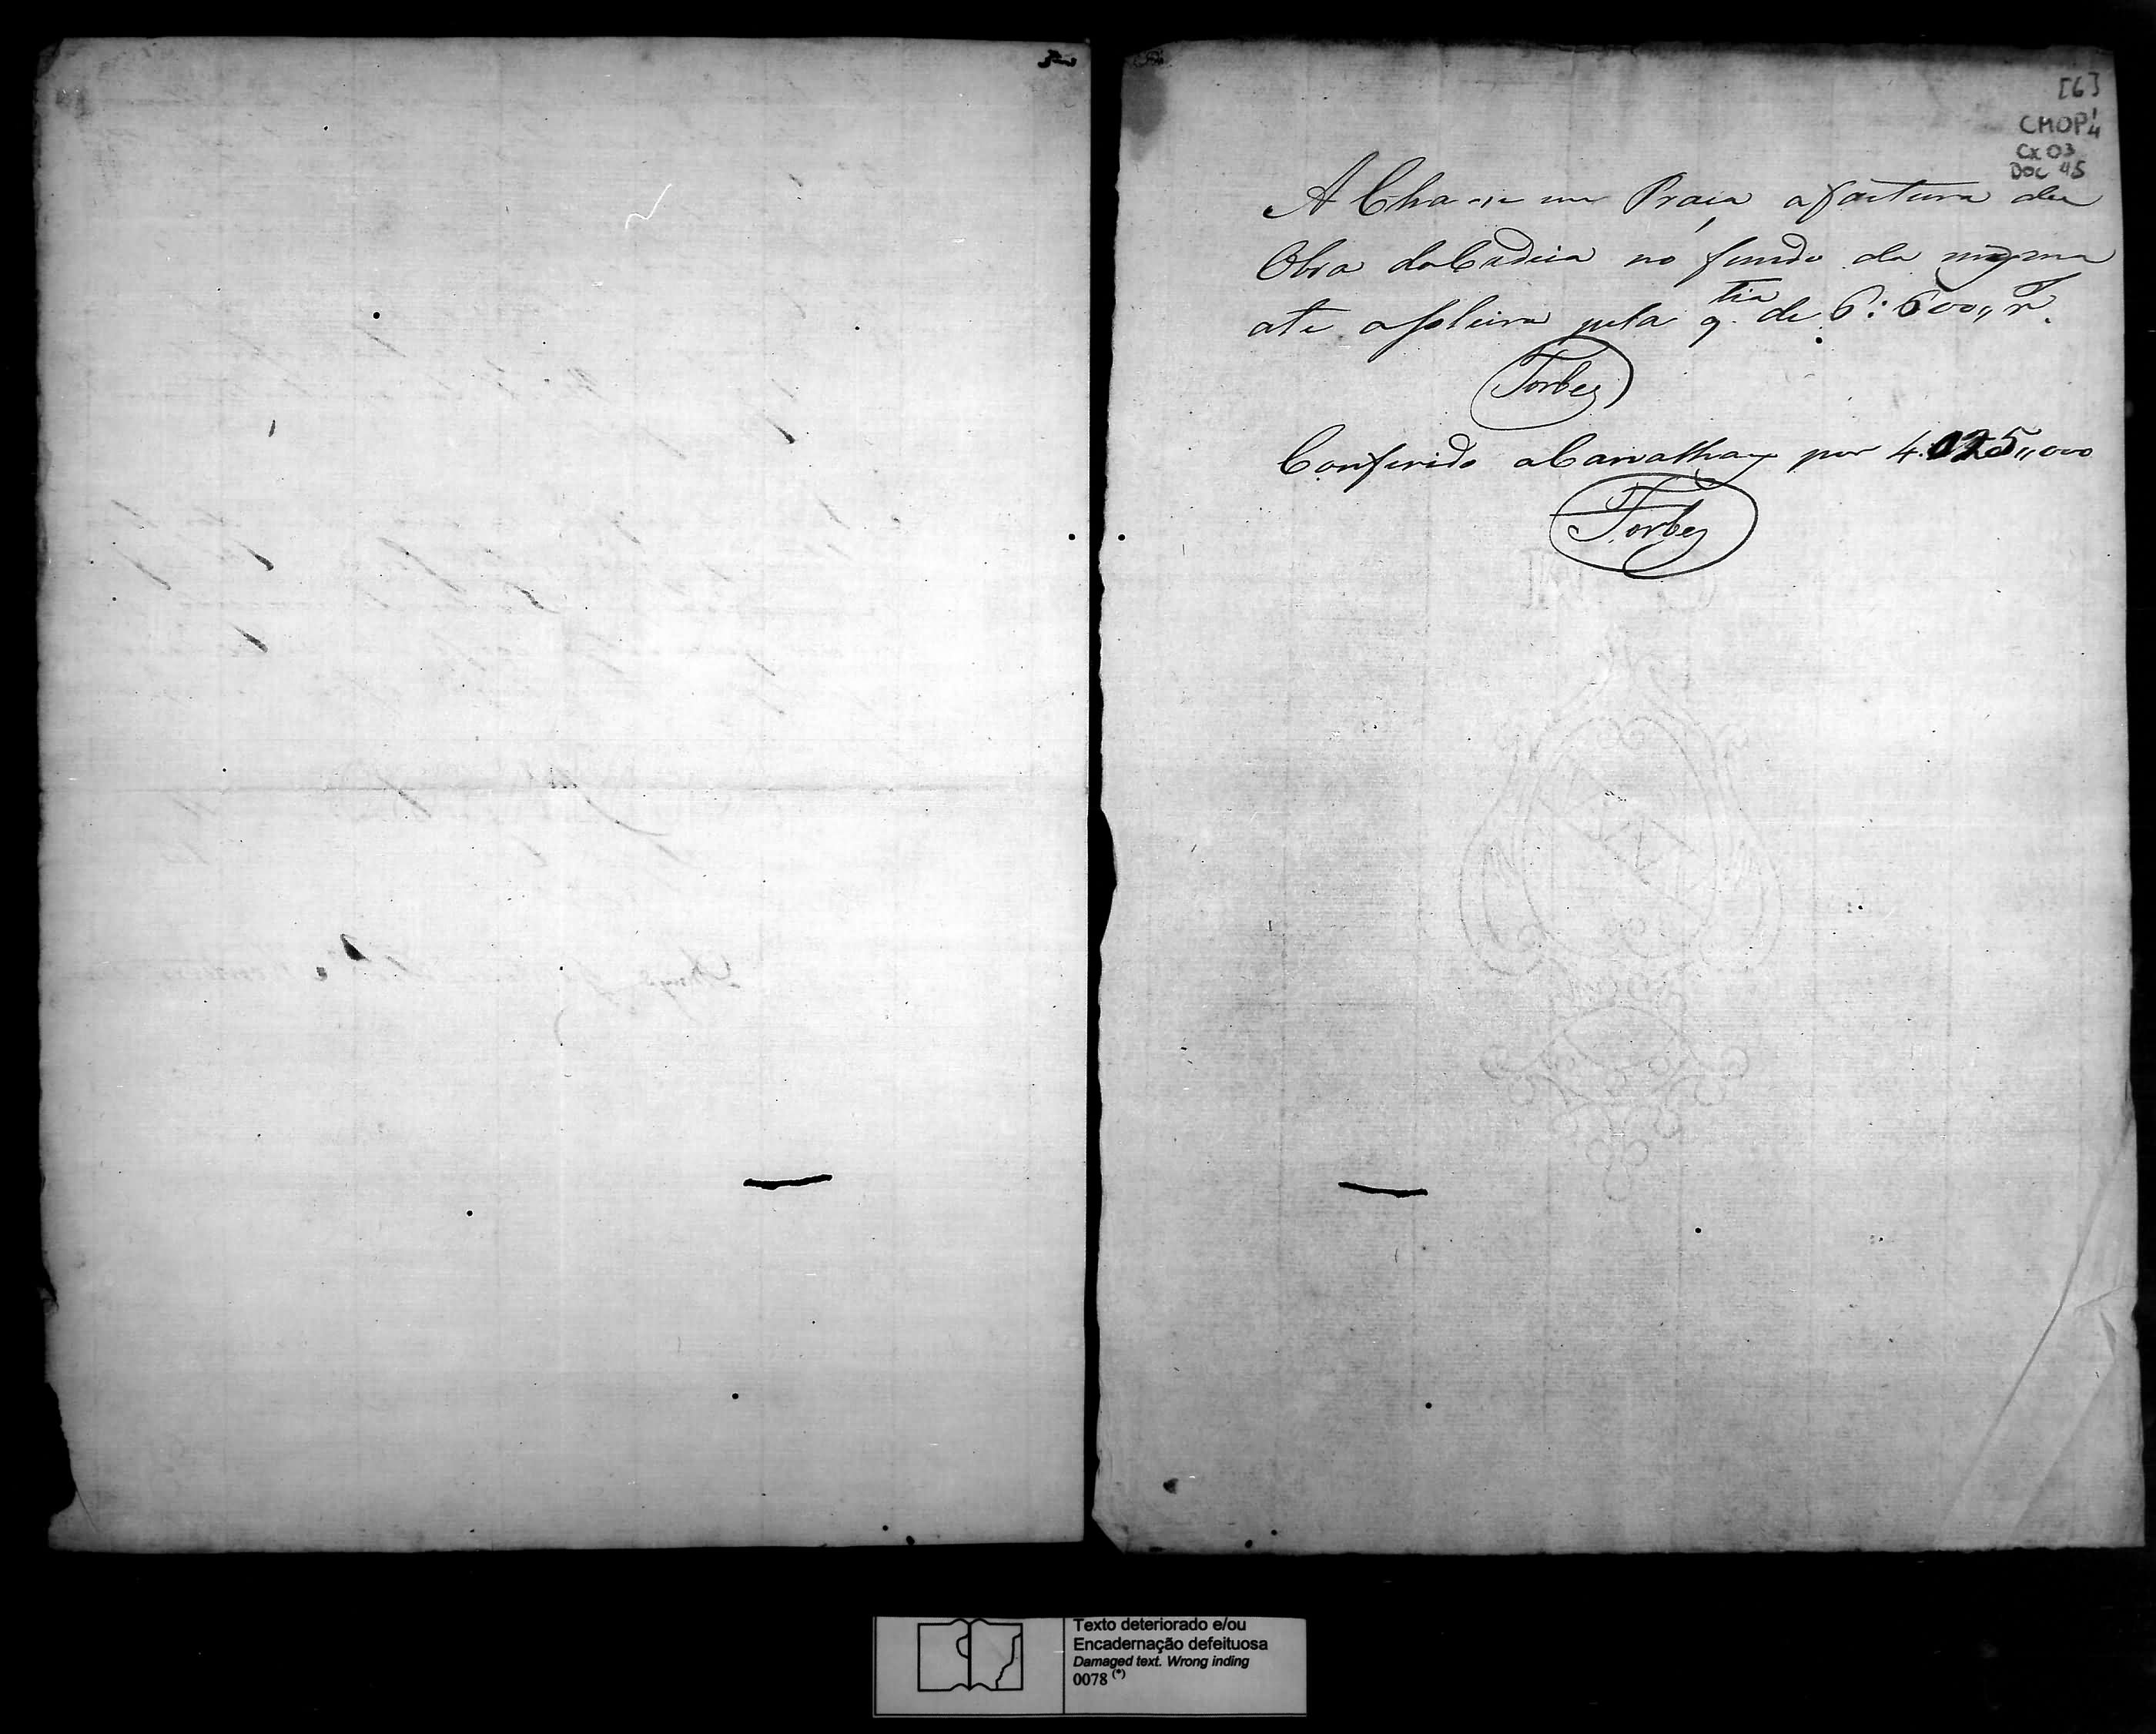 [6]
CMOP 1/4
Cx 03
DOC 45
A Cha-se na Praça a factura da
Obra da Cadeia no fundo da mesma
ate a soleira pela q.tia de 6:600,,r.
Torbes
Conferido a Carvalhaes por 4.025,,000
Torbes
Texto deteriorado e/ou
Encadernação defeituosa
Damaged text. Wrong inding
0078 (*)